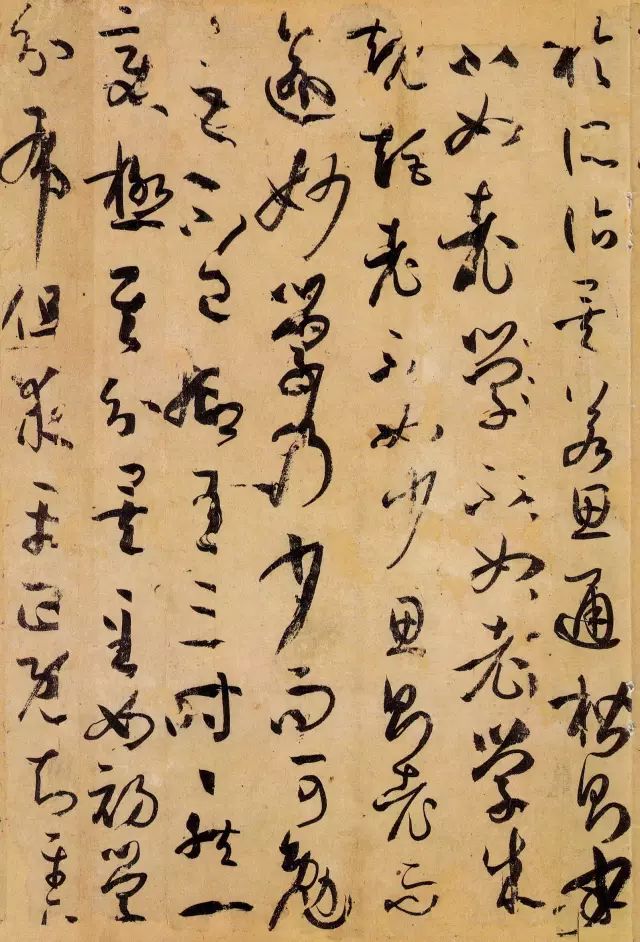 於所詣矣若思通楷則少
不如老學不如老學成
規矩老不如少思則老而
逾妙學乃少而可勉
々之不已抑有三時々然一
變極其分矣至如初學
分布但求平正既知平正